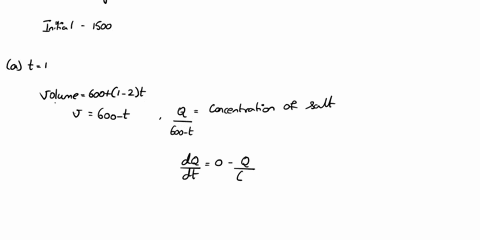 Initial - 1500
(a) t=1
Volume = 600+(1-2)t
V = 600-t , Q/600-t = Concentration of salt
dQ/dt = 0 - Q/(